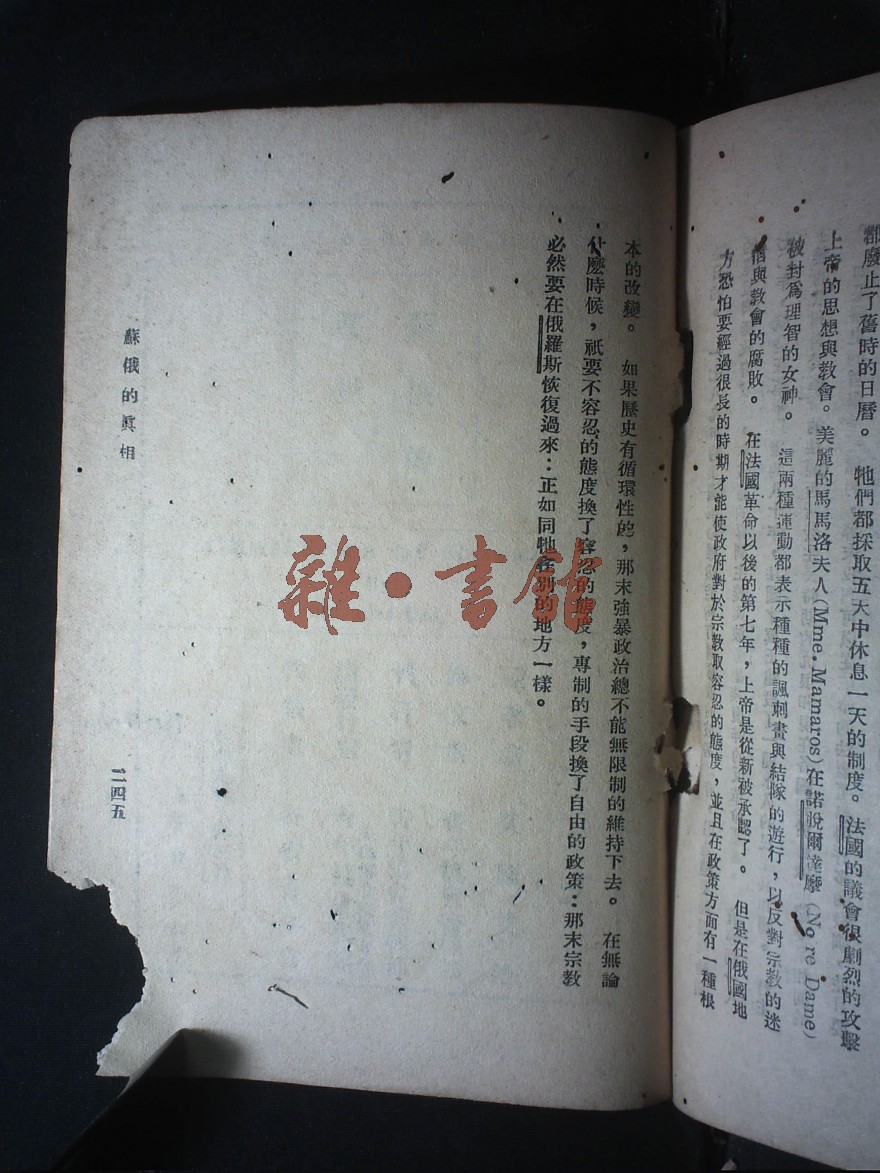 都廢止了舊時的日曆。 牠們都採取五天中休息一天的制度。 法國的議會很劇烈的攻擊
上帝的思想與教會。美麗的馬馬洛夫人(Mme. Mamaros)在諾脫爾達摩(No re Dame)
被封爲理智的女神。 這兩種運動都表示種種的諷刺畫與結隊的遊行,以反對宗教的迷
信與教會的腐敗。 在法國革命以後的第七年,上帝是從新被承認了。 但是在俄國地
方恐怕要經過很長的時期才能使政府對於宗教取容忍的態度,並且在政策方面有一種根
本的改變。 如果歷史有循環性的,那末強暴政治總不能無限制的維持下去。 在無論
什麼時候,祇要不容忍的態度換了容忍的態度,專制的手段換了自由的政策:那末宗教
必然要在俄羅斯恢復過來:正如同牠在別的地方一樣。
蘇俄的眞相
二四五
雜·書館